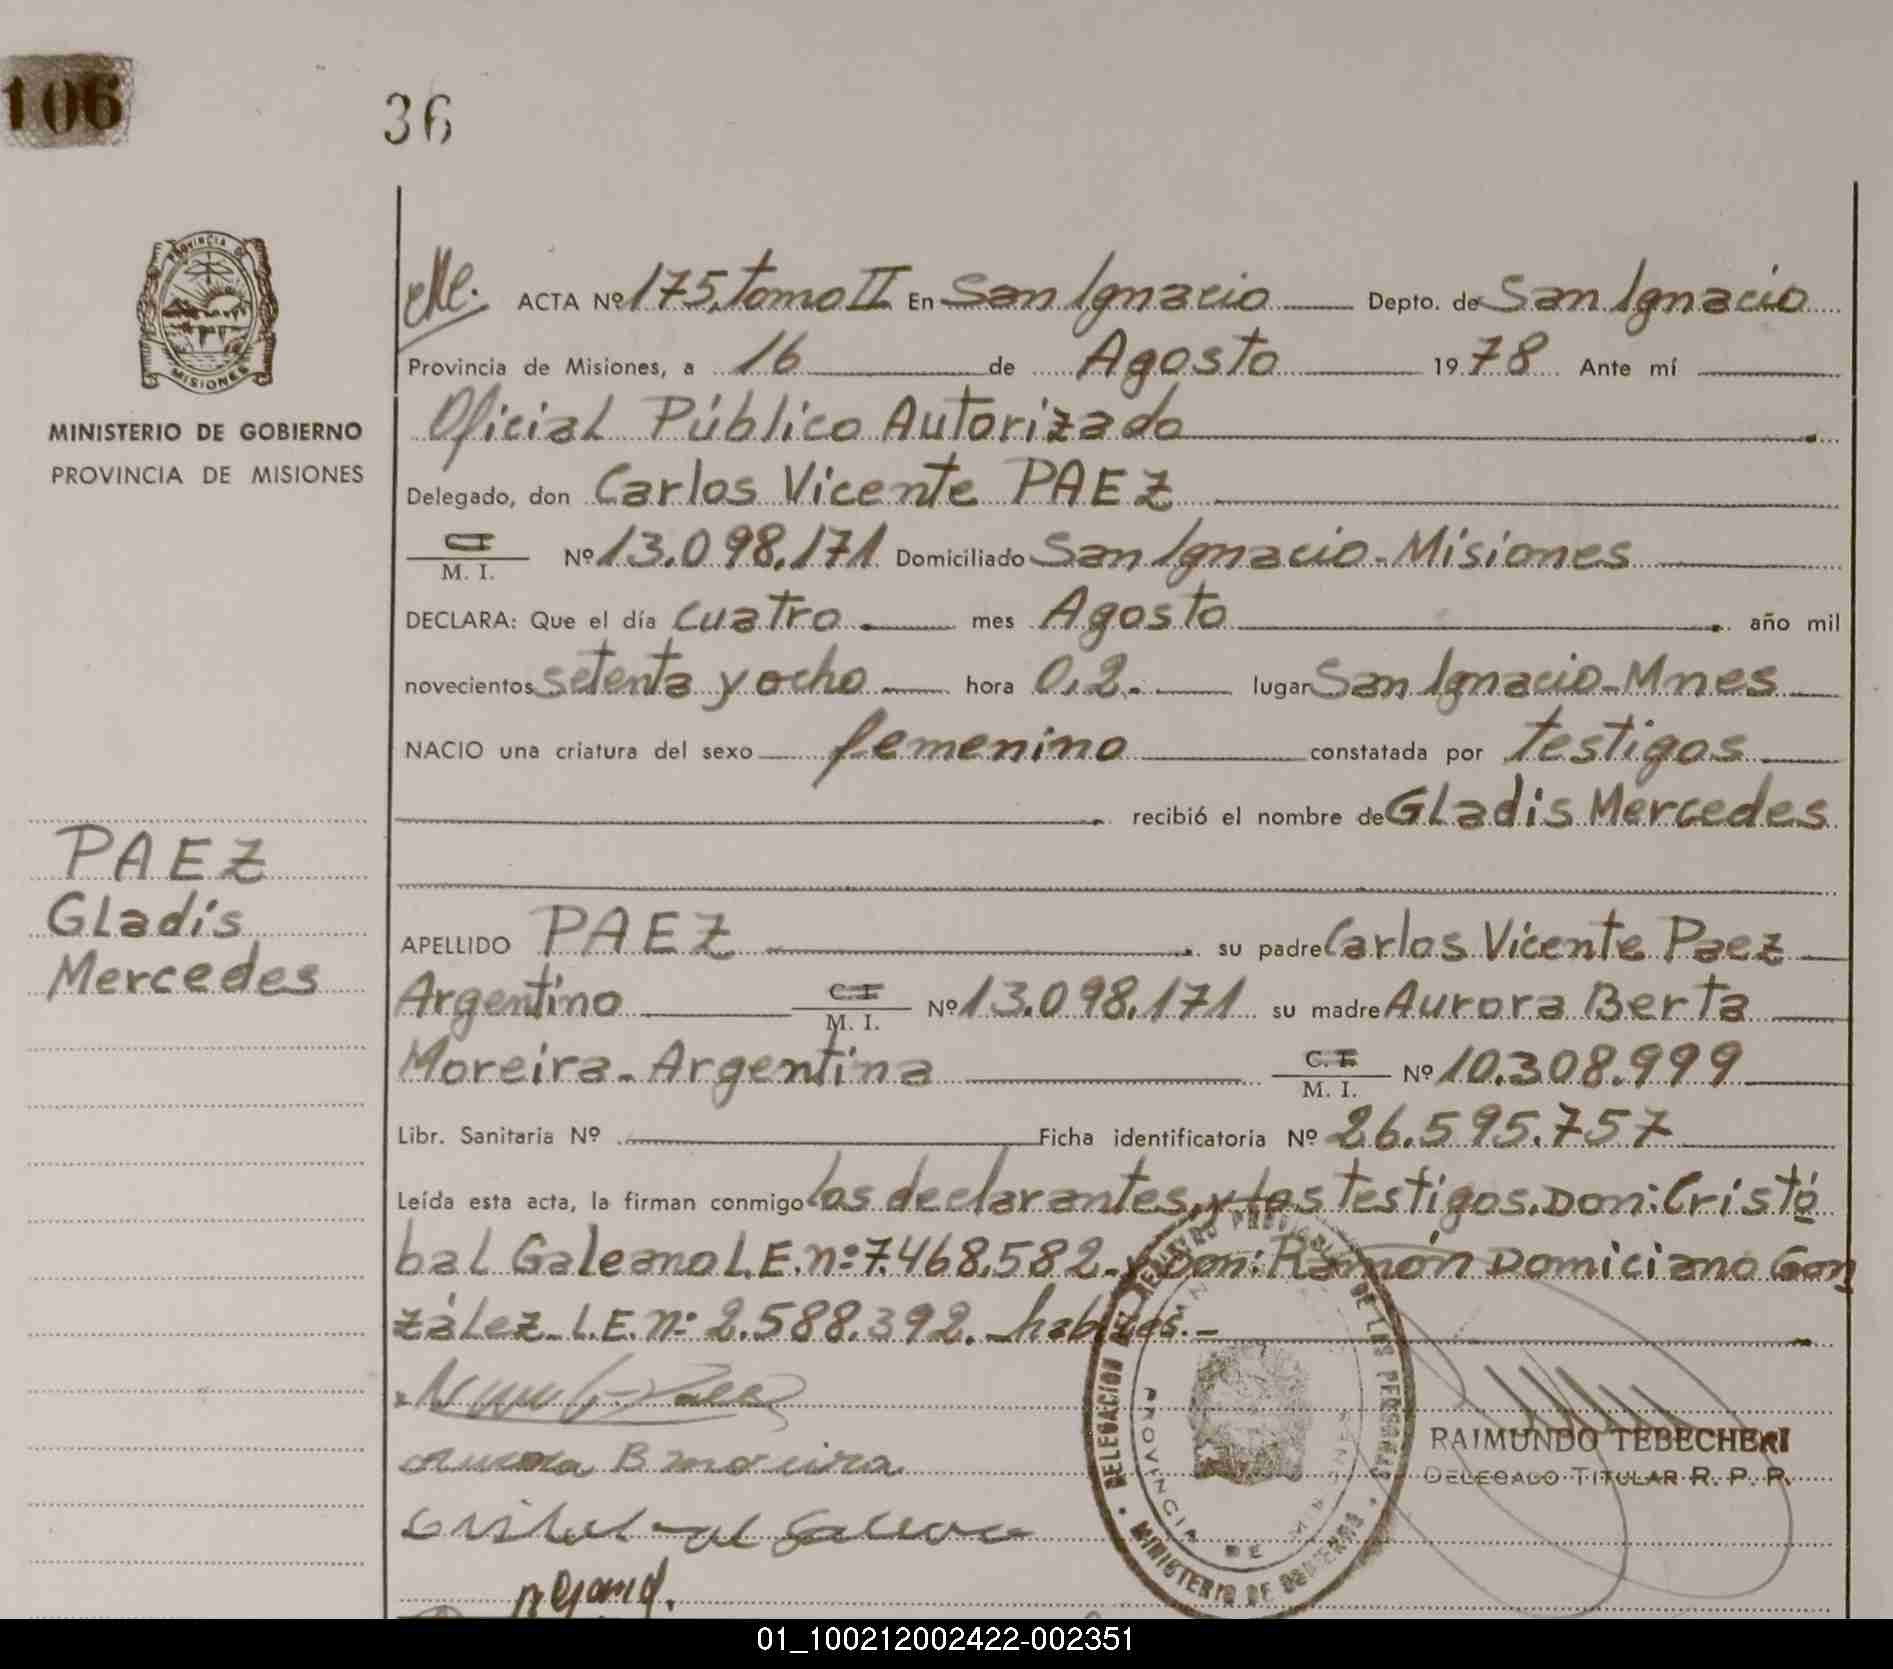 106
36
PROVINCIA DE
MISIONES
MINISTERIO DE GOBIERNO
PROVINCIA DE MISIONES
ACTA Nº 175, tomo II En San Ignacio Depto. de San Ignacio
Provincia de Misiones, a 16 de Agosto 1978 Ante mí
Oficial Público Autorizado
Delegado, don Carlos Vicente PAEZ
C.I. / M. I. Nº 13.098.171 Domiciliado San Ignacio-Misiones
DECLARA: Que el día cuatro mes Agosto año mil
novecientos setenta y ocho hora 0,2. lugar San Ignacio-Mnes
NACIO una criatura del sexo femenino constatada por testigos
recibió el nombre de Gladis Mercedes
PAEZ
Gladis
Mercedes
APELLIDO PAEZ su padre Carlos Vicente Paez
Argentino C.I. / M. I. Nº 13.098.171 su madre Aurora Berta
Moreira-Argentina C.I. / M. I. Nº 10.308.999
Libr. Sanitaria Nº Ficha identificatoria Nº 26.595.757
Leída esta acta, la firman conmigo los declarantes, y los testigos, Don: Cristó
bal Galeano L.E. nº 7.468.582- y Don: Ramón Domiciano Gon
zález- L.E. nº 2.588.392. hábiles.-
Paez
Aurora B moreira
RAIMUNDO TEBECHERI
DELEGADO TITULAR R. P. P.
DELEGACION DEL REGISTRO PROVINCIAL DE LAS PERSONAS
PROVINCIA DE MISIONES
MINISTERIO DE GOBIERNO
01_100212002422-002351